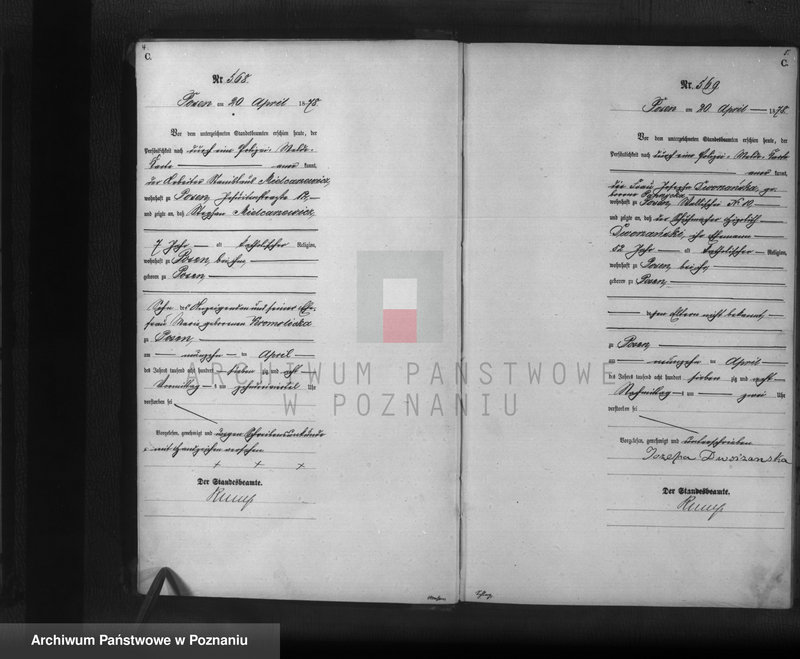 4.
C.
Nr. 568.
Posen am 20 April 1878
Vor dem unterzeichneten Standesbeamten erschien heute, der
Persönlichkeit nach durch eine Polizei-Melde-
karte kannt,
der Arbeiter Stanislaus Mielcarewicz,
wohnhaft zu Posen,
und zeigte an, daß Stephan Mielcarewicz,
7 Jahr alt katholischer Religion,
wohnhaft zu Posen, bei ihm,
geboren zu Posen,
Sohn des Anzeigenden und seiner Ehe-
frau Maria geborenen
zu Posen
am neunzehn ten April
des Jahres tausend acht hundert sieben zig und acht
Vormittags um Uhr
verstorben sei
Vorgelesen, genehmigt und wegen Schreibensunkunde
mit Handzeichen versehen
+ + +
Der Standesbeamte.
5.
C.
Nr. 569
Posen am 20 April 1878.
Vor dem unterzeichneten Standesbeamten erschien heute, der
Persönlichkeit nach durch eine Polizei-Melde-Karte
kannt,
die Frau Josepha Dworzańska, ge-
borene
wohnhaft zu Posen, Wallischei No
und zeigte an, daß der Schuhmacher
Dworzański, ihr Ehemann
52 Jahr alt katholischer Religion,
wohnhaft zu Posen, bei ihr,
geboren zu Posen,
dessen Eltern nicht bekannt,
zu Posen
am neunzehn ten April
des Jahres tausend acht hundert sieben zig und acht
Nachmittags um zwei Uhr
verstorben sei
Vorgelesen, genehmigt und unterschrieben
Jozefa Dworzanska
Der Standesbeamte.
ARCHIWUM PAŃSTWOWE
W POZNANIU
Archiwum Państwowe w Poznaniu